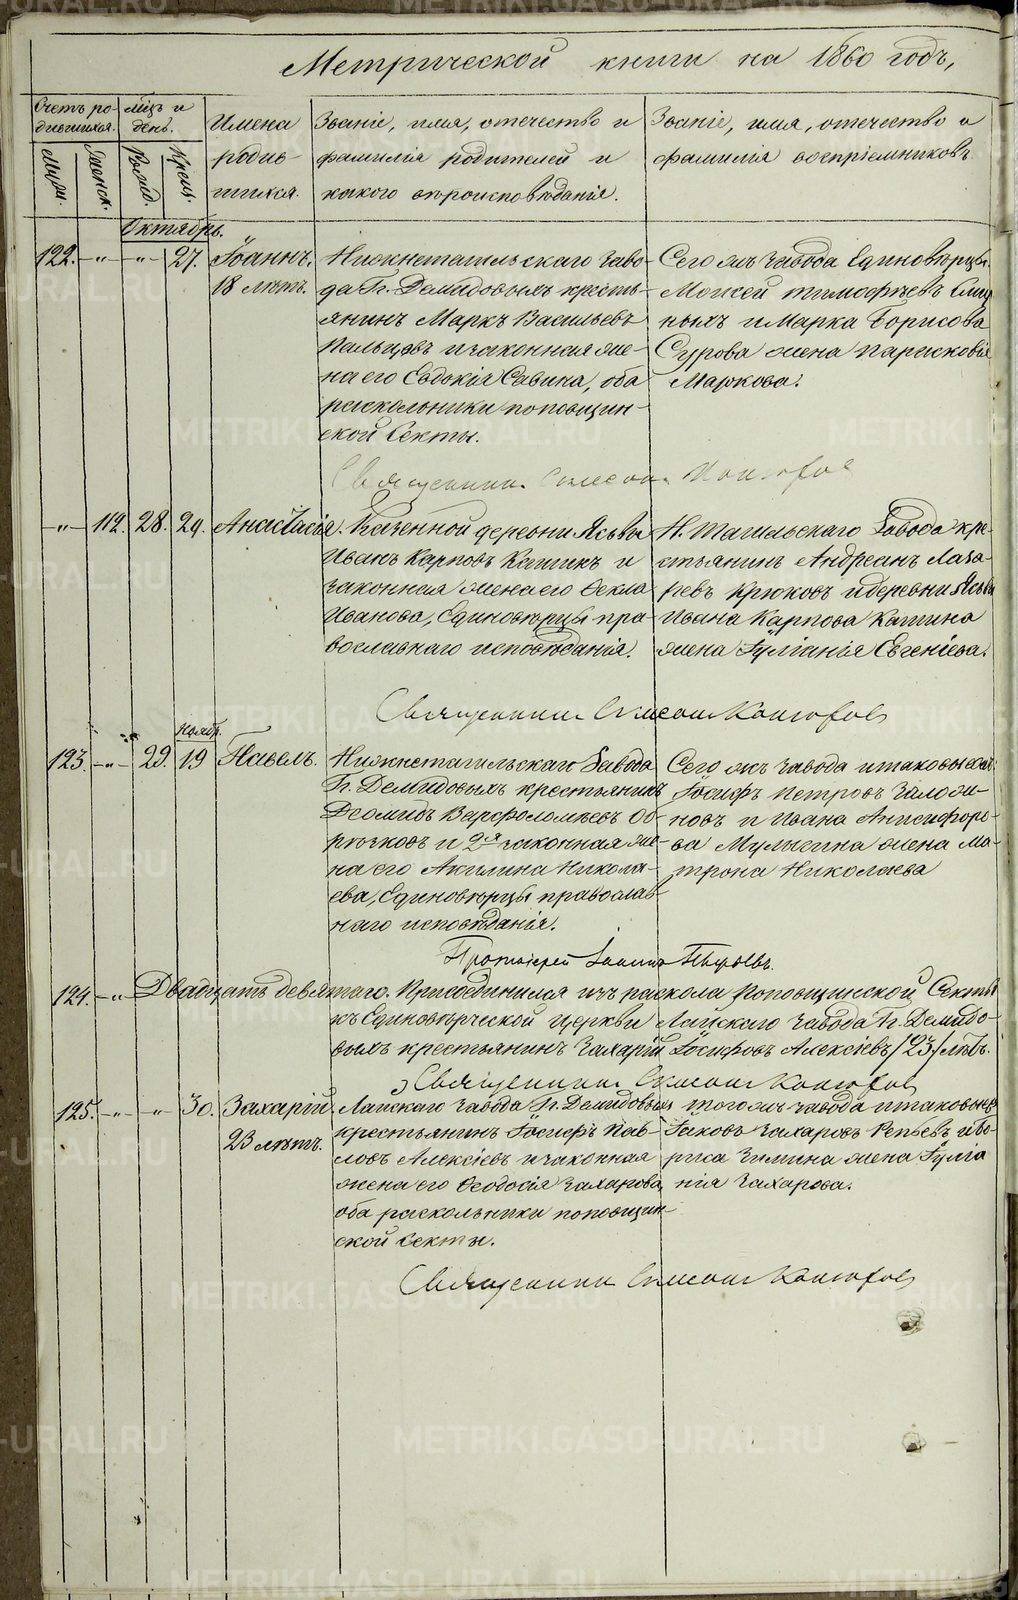 Метрической книги на 1860 годъ,
Счетъ ро-
дившихся.
Мѣц и
день.
Имена
родив-
шихся.
Званіе, имя, отечество и
фамилія родителей и
какого вѣроисповѣданія.
Званіе, имя, отечество и
фамилія воспріемниковъ
Муж.
Женск.
Рожд.
Крещ.
Октябрь.
122. -"- -"- 27.
Іоаннъ.
18 лѣтъ.
Нижнетагильскаго заво-
да Гг. Демидовыхъ кресть-
янинъ Маркъ Васильевъ
Пальцовъ и законная же-
на его Евдокія Савина, оба
раскольники поповщин-
ской Секты.
Сего жъ завода Единовѣрцы
Моисей Тимофѣевъ
ныхъ и Марка Борисова
Сурова жена Парасковія
Маркова.
Священник Симеон Конюхов
-"- 112. 28. 29.
Анастасія.
Казенной деревни Ясьвы
Иванъ Карповъ Катинъ и
законная жена его Ѳекла
Иванова, Единовѣрцы пра-
вославнаго исповѣданія.
Н. Тагильскаго Завода кре-
стьянинъ Андреянъ Лаза-
ревъ Крюковъ и деревни Ясьвы
Ивана Карпова Катина
жена Іуліанія Евгеніева.
Священник Симеон Конюхов
Ноябр.
123. -"- 29. 19
Павелъ.
Нижнетагильскаго Завода
Гг. Демидовыхъ крестьянинъ
Деомидъ Варфоломѣевъ Об-
ручковъ и 2я законная же-
на его Акилина Никола-
ева, Единовѣрцы православ-
наго исповѣданія.
Сего жъ завода и таковы же
Іосифъ Петровъ Заложи-
новъ и Ивана Анисифоро-
ва Мулыгина жена Ма-
трона Николаева
Протоіерей Іоаннъ Пырьевъ.
124. -"- Двадцать девятаго. Присоединился изъ раскола Поповщинской Секты
къ Единовѣрческой церкви Лайскаго завода Гг. Демидо-
выхъ крестьянинъ Захарій Іосифовъ Алексіевъ /23/ лѣтъ.
Священник Симеон Конюхов
125. -"- -"- 30.
Захарій.
23 лѣтъ.
Лайскаго завода Гг. Демидовыхъ
крестьянинъ Іосифъ Пав-
ловъ Алексіевъ и законная
жена его Ѳеодосія Захарова,
оба раскольники поповщин-
ской секты.
того жъ завода и таковы же
Іаковъ Захаровъ Репьевъ и Бо-
риса Зимина жена Іулiа
нія Захарова.
Священник Симеон Конюхов
METRIKI.GASO-URAL.RU